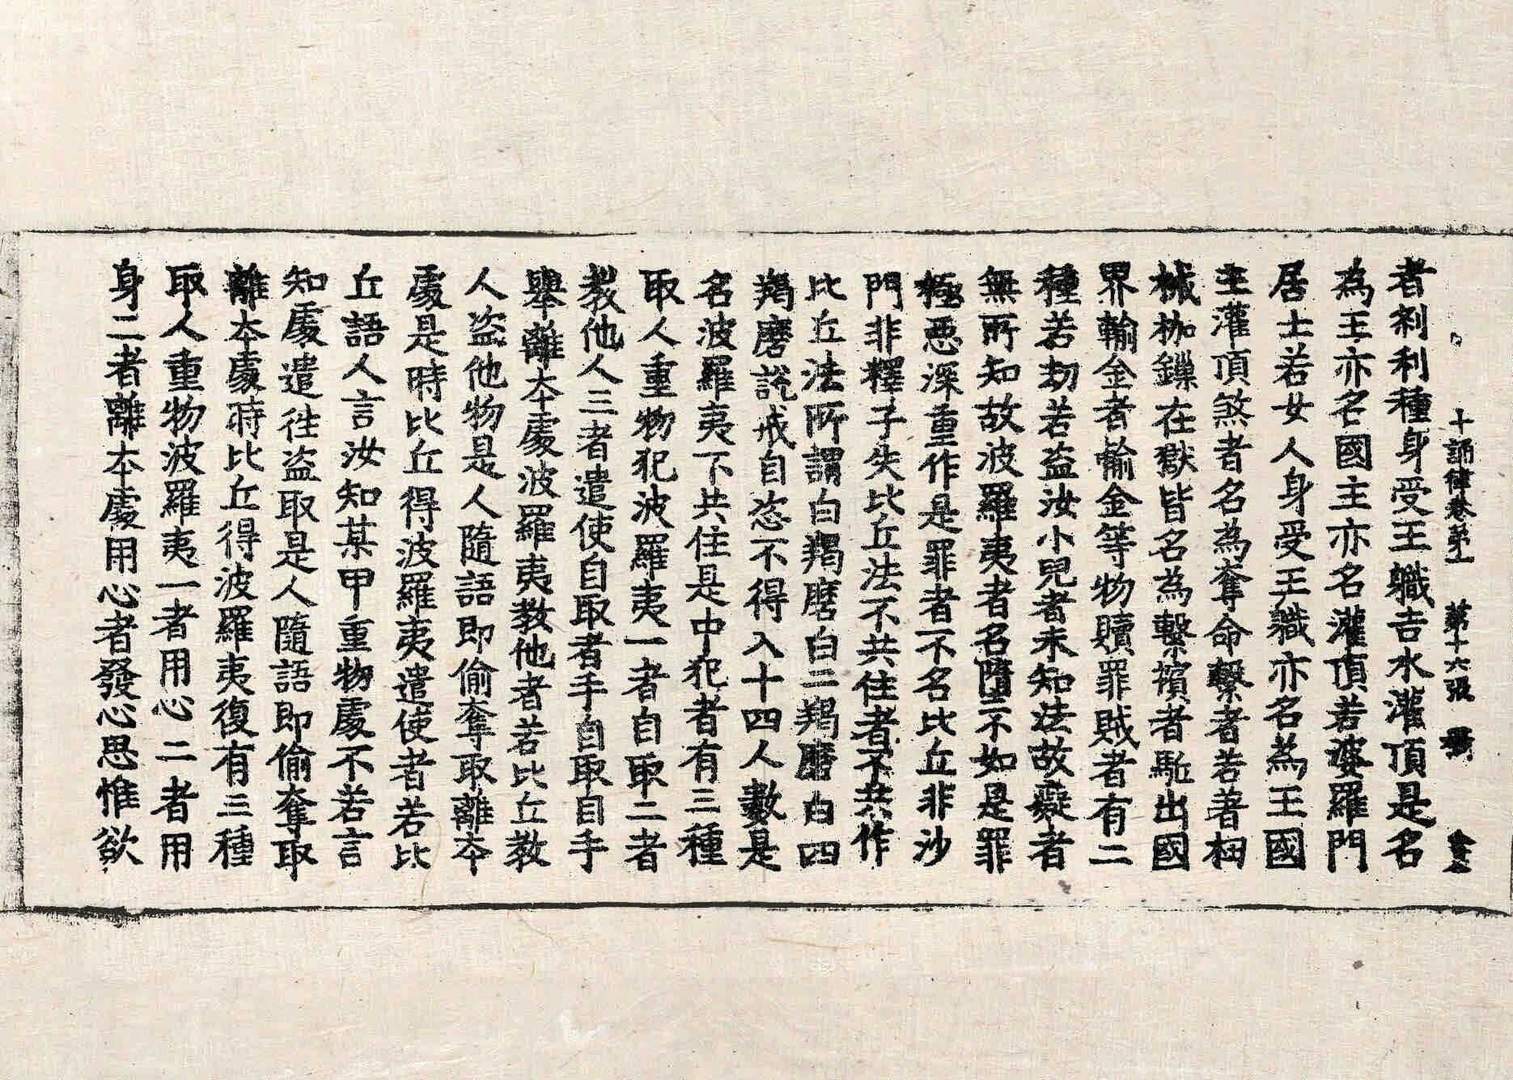 十誦律卷第一 第十六張
者刹利種身受王職吉水灌頂是名
為王亦名國主亦名灌頂若婆羅門
居士若女人身受王職亦名為王國
主灌頂煞者名為奪命繫者若著杻
械枷鏁在獄皆名為繫擯者駈出國
界輸金者輸金等物贖罪賊者有二
種若劫若盜汝小兒者未知法故癡者
無所知故波羅夷者名墮不如是罪
極惡深重作是罪者不名比丘非沙
門非釋子失比丘法不共住者不共作
比丘法所謂白羯磨白二羯磨白四
羯磨說戒自恣不得入十四人數是
名波羅夷不共住是中犯者有三種
取人重物犯波羅夷一者自取二者
教他人三者遣使自取者手自取自手
舉離本處波羅夷教他者若比丘教
人盜他物是人隨語即偷奪取離本
處是時比丘得波羅夷遣使者若比
丘語人言汝知某甲重物處不若言
知處遣往盜取是人隨語即偷奪取
離本處時比丘得波羅夷復有三種
取人重物波羅夷一者用心二者用
身三者離本處用心者發心思惟欲